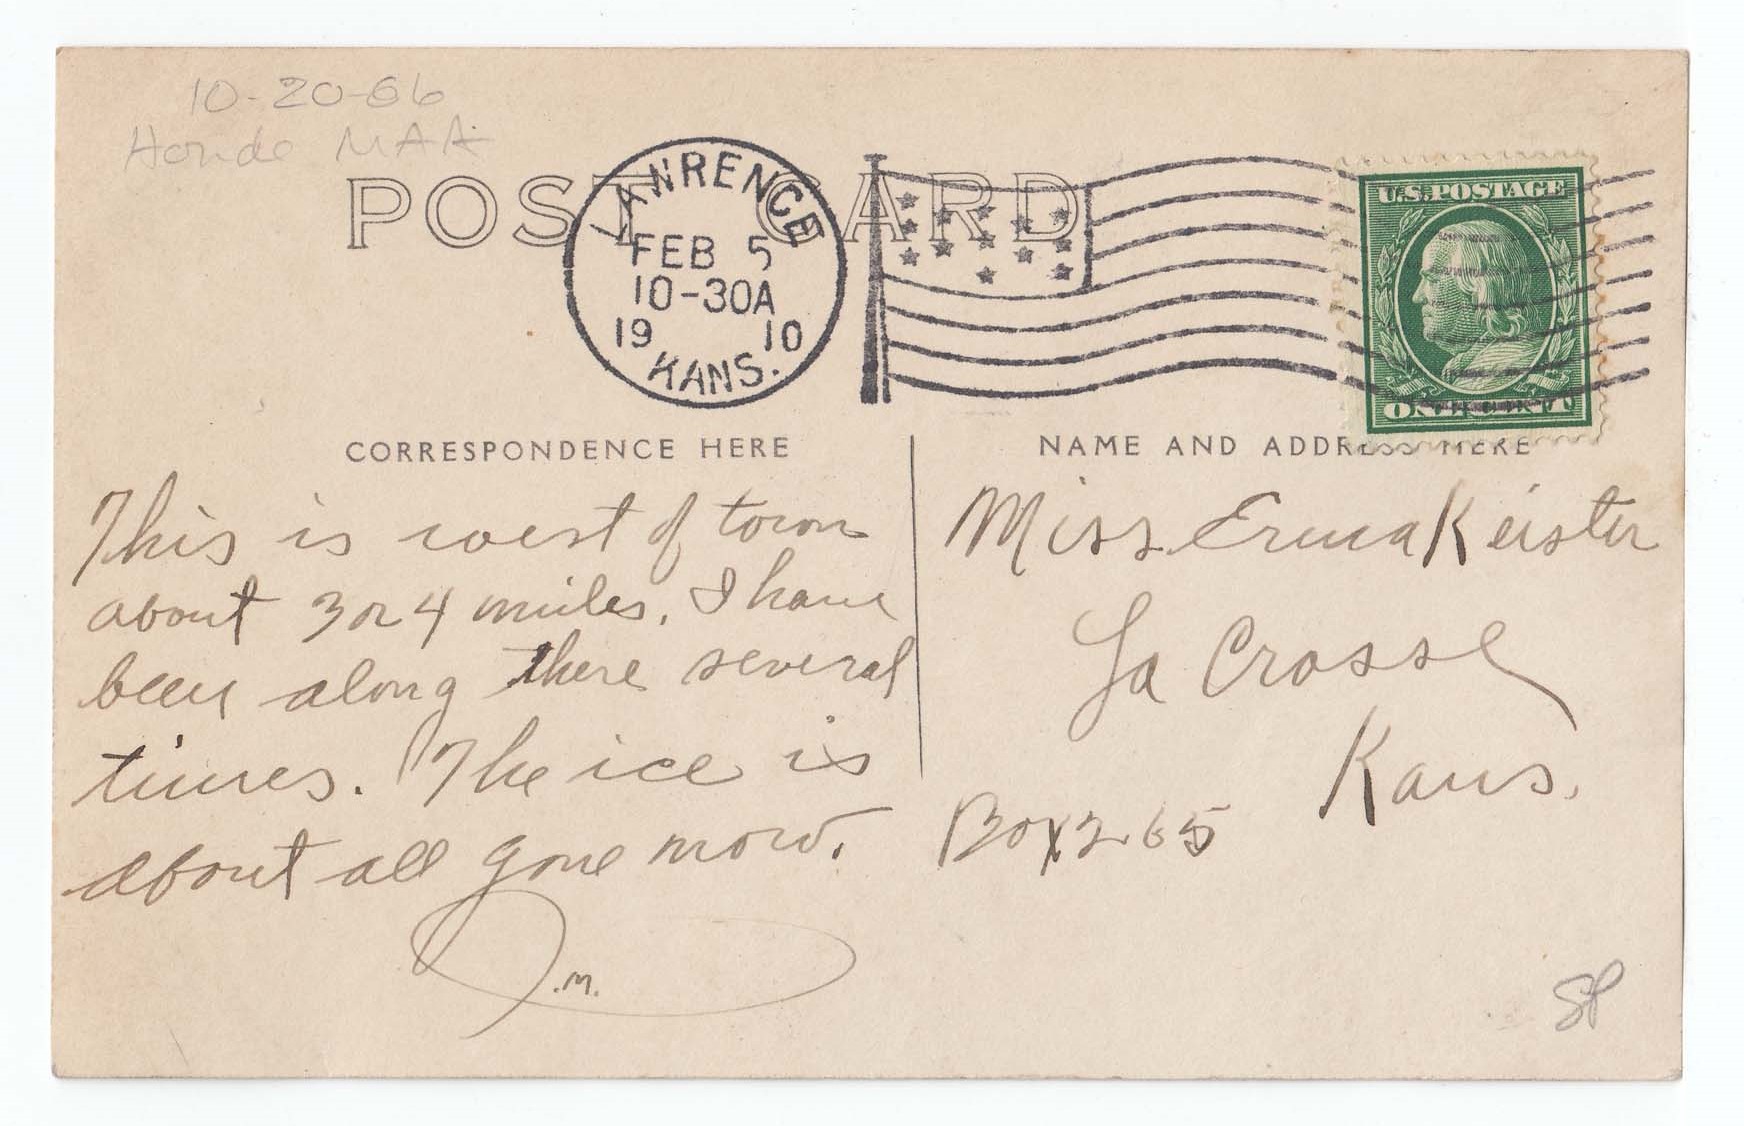 10-20-66
POST CARD
LAWRENCE
FEB 5
10-30A
19 10
KANS.
U.S. POSTAGE
ONE CENT
CORRESPONDENCE HERE
NAME AND ADDRESS HERE
This is west of town
about 3 or 4 miles. I have
been along there several
times. The ice is
about all gone now.
J.M.
Miss Erma Keister
La Crosse
Kans.
Box 265